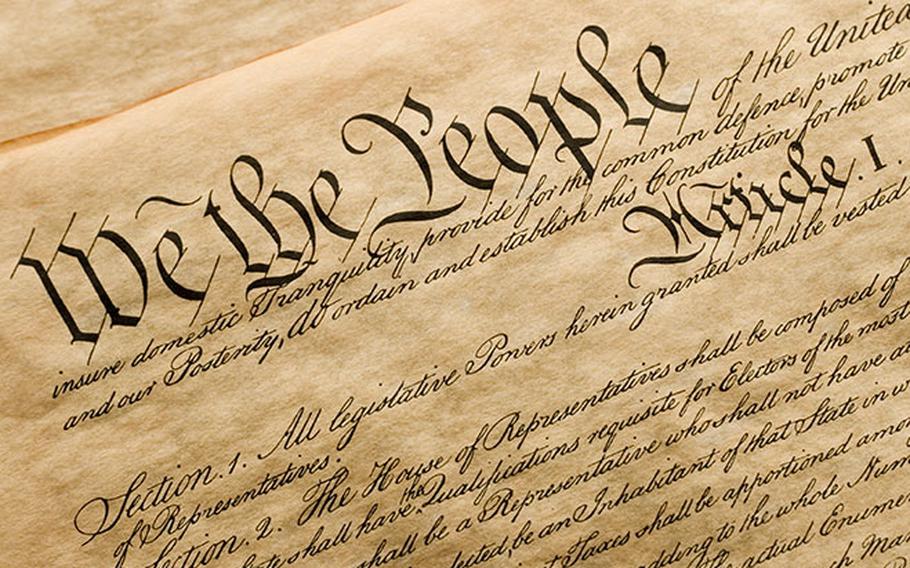 We the People of the United
insure domestic Tranquility, provide for the common defence, promote
and our Posterity, do ordain and establish this Constitution for the Un
Article. I.
Section. 1. All legislative Powers herein granted shall be vested
of Representatives.
Section. 2. The House of Representatives shall be composed of
State shall have the Qualifications requisite for Electors of the most
shall be a Representative who shall not have
elected, be an Inhabitant of that State in w
Taxes shall be apportioned amon
adding to the whole Num
actual Enumer